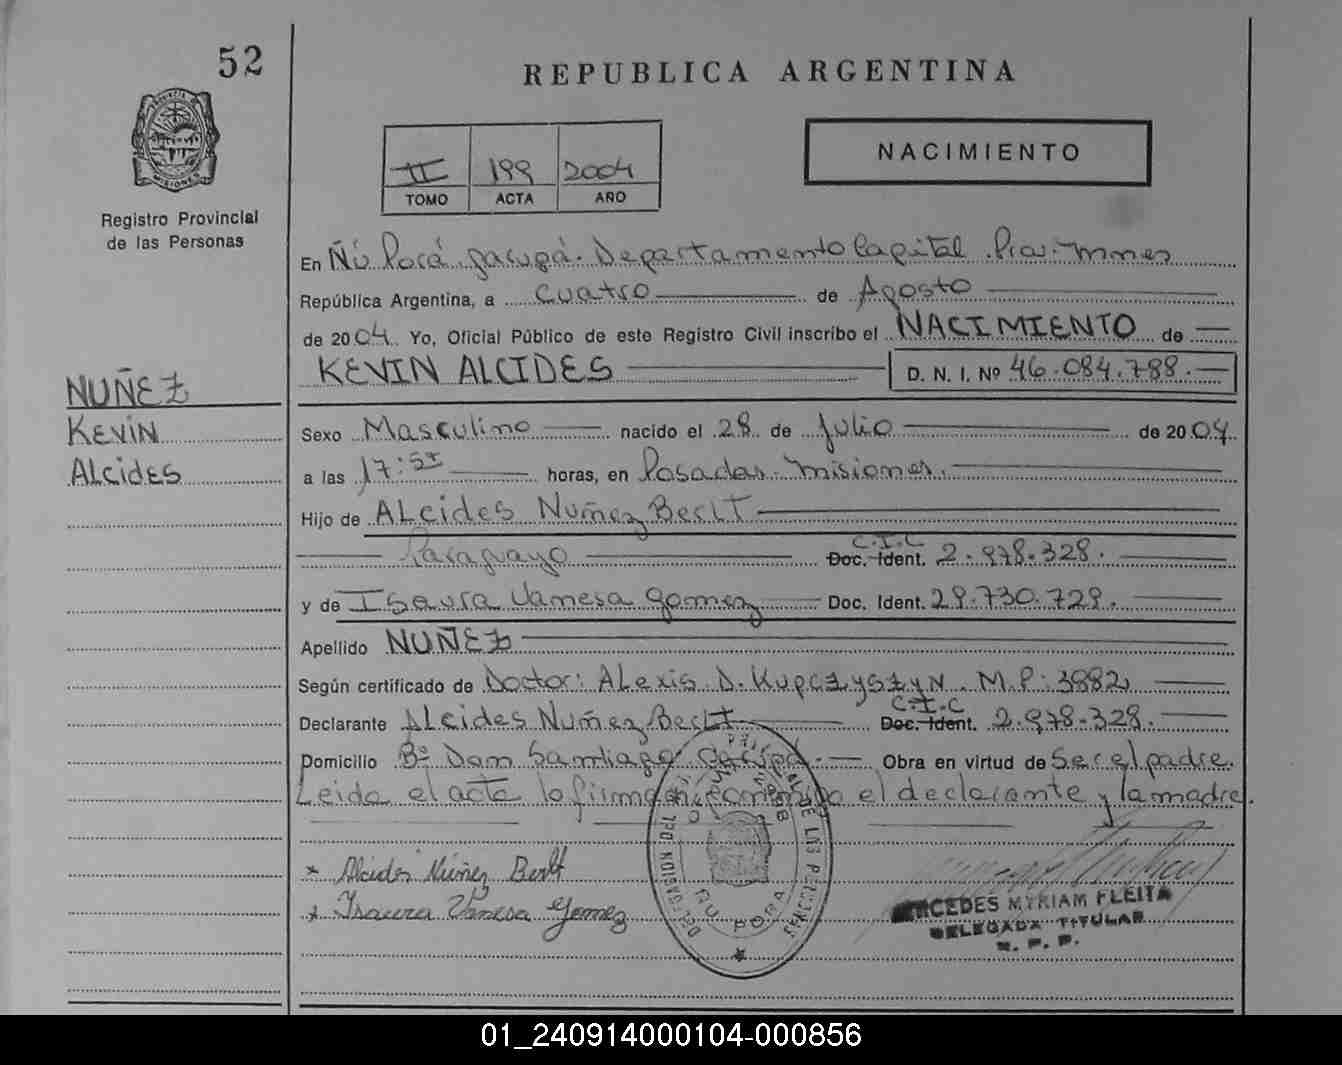 52
REPUBLICA ARGENTINA
PROVINCIA DE MISIONES
Registro Provincial
de las Personas
II 199 2004
TOMO ACTA AÑO
NACIMIENTO
En Ñú Porá. Garupá. Departamento Capital. Prov. Mnes
República Argentina, a cuatro de Agosto
de 2004 Yo, Oficial Público de este Registro Civil inscribo el NACIMIENTO de
KEVIN ALCIDES D. N. I. Nº 46.084.788.
NUÑEZ
KEVIN
ALCIDES
Sexo Masculino nacido el 28 de Julio de 2004.
a las 17:51 horas, en Posadas. Misiones.
Hijo de ALcides Nuñez Berlt
Paraguayo C.I.C Doc. Ident. 2.978.328.
y de Isaura Vanesa Gomez Doc. Ident. 29.730.729.
Apellido NUÑEZ
Según certificado de Doctor: ALexis D. Kupczyszyn. M.P: 3882
Declarante ALcides Nuñez Berlt C.I.C Doc. Ident. 2.978.328.
Domicilio Bº Don Santiago Garupá. Obra en virtud de Ser el padre.
Leida el acta la firman conmigo el declarante y la madre.
x Alcides Núñez Berlt
x Isaura Vanesa Gomez
ÑU PORA
MERCEDES MYRIAM FLEITA
DELEGADA TITULAR
R. P. P.
01_240914000104-000856